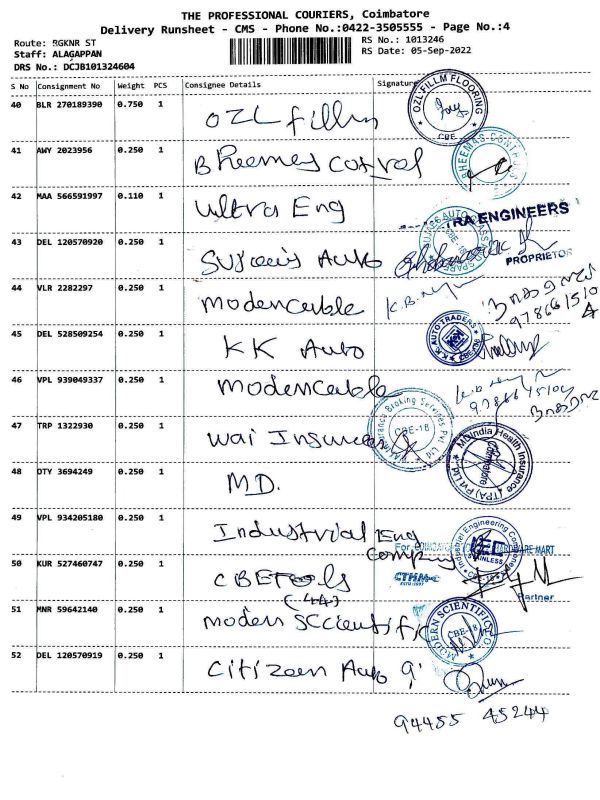 THE PROFESSIONAL COURIERS, Coimbatore
Delivery Runsheet - CMS - Phone No.:0422-3505555 - Page No.:4
Route: RGKNR ST
Staff: ALAGAPPAN
DRS No.: DCJB101324604
RS No.: 1013246
RS Date: 05-Sep-2022
S No Consignment No Weight PCS Consignee Details Signature
40 BLR 270189390 0.750 1 OZL fillm
OZL FILLM FLOORING CBE
41 AWY 2023956 0.250 1 Bheemas Cotrol
BHEEMAS CONTROLS
42 MAA 566591997 0.110 1 Ultra Eng
TRA ENGINEERS
PROPRIETOR
43 DEL 120570920 0.250 1 Sujais Auto
44 VLR 2282297 0.250 1 modencable
45 DEL 528509254 0.250 1 KK Auto
K.K. AUTO TRADERS CBE-18
46 VPL 939049337 0.250 1 modencable
47 TRP 1322930 0.250 1 wai Insurces
Insurance Broking Services Pvt Ltd CBE-18
48 DTY 3694249 0.250 1 M.D.
MDIndia Health Insurance (TPA) Pvt Ltd Coimbatore
49 VPL 934205180 0.250 1 Industrial Eng
Company
Industrial Engineering IEC STAINLESS CBE-18
50 KUR 527460747 0.250 1 CBETools
(44)
For COIMBATORE HARDWARE MART
Partner
51 MNR 59642140 0.250 1 modern SCcientific
MODERN SCIENTIFIC CO. CBE-18
52 DEL 120570919 0.250 1 Citizeen Auto
94455 45244